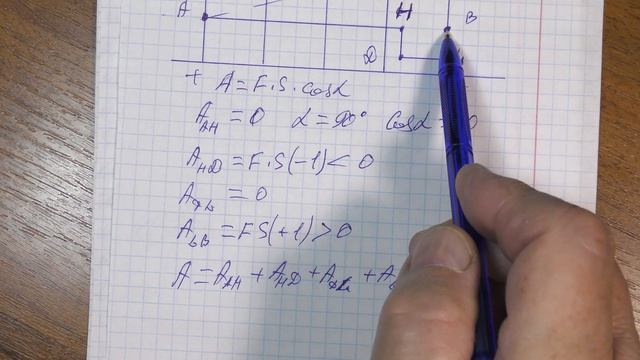 A H B
D
+ A = F.S.cosα
A_AH = 0 α = 90° cosα = 0
A_HD = F.S(-1) < 0
= 0
A_bB = FS(+1) > 0
A = A_AH + A_HD +